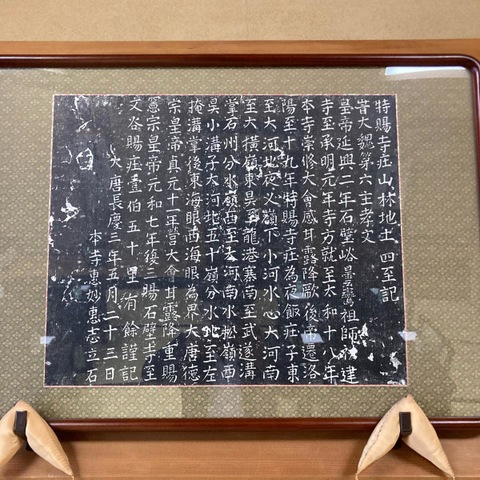 特賜寺莊山林地土四至記
昔大魏第六主孝文
皇帝延興二年石壁峪曇鸞祖師初建
寺至承明元年寺方就至太和十八年
本寺崇修大會感甘露降歐後帝遷洛
陽至十九年特賜寺莊為夜飯莊子東
至大河北夜义嶺下小河水心大河南
至大橫嶺東昊至龍港寨南至武遂溝
掌石州分水嶺西至大河南水松嶺西
昊小溝子大河北五十嶺分水北至左
掩溝掌後東海眼西海眼為界大唐德
宗皇帝真元十一年營大會甘露降重賜
憲宗皇帝元和七年後三賜石壁寺至
文谷賜莊壹伯五十里有餘謹記
大唐長慶三年五月二十三日
本寺惠妙惠志立石